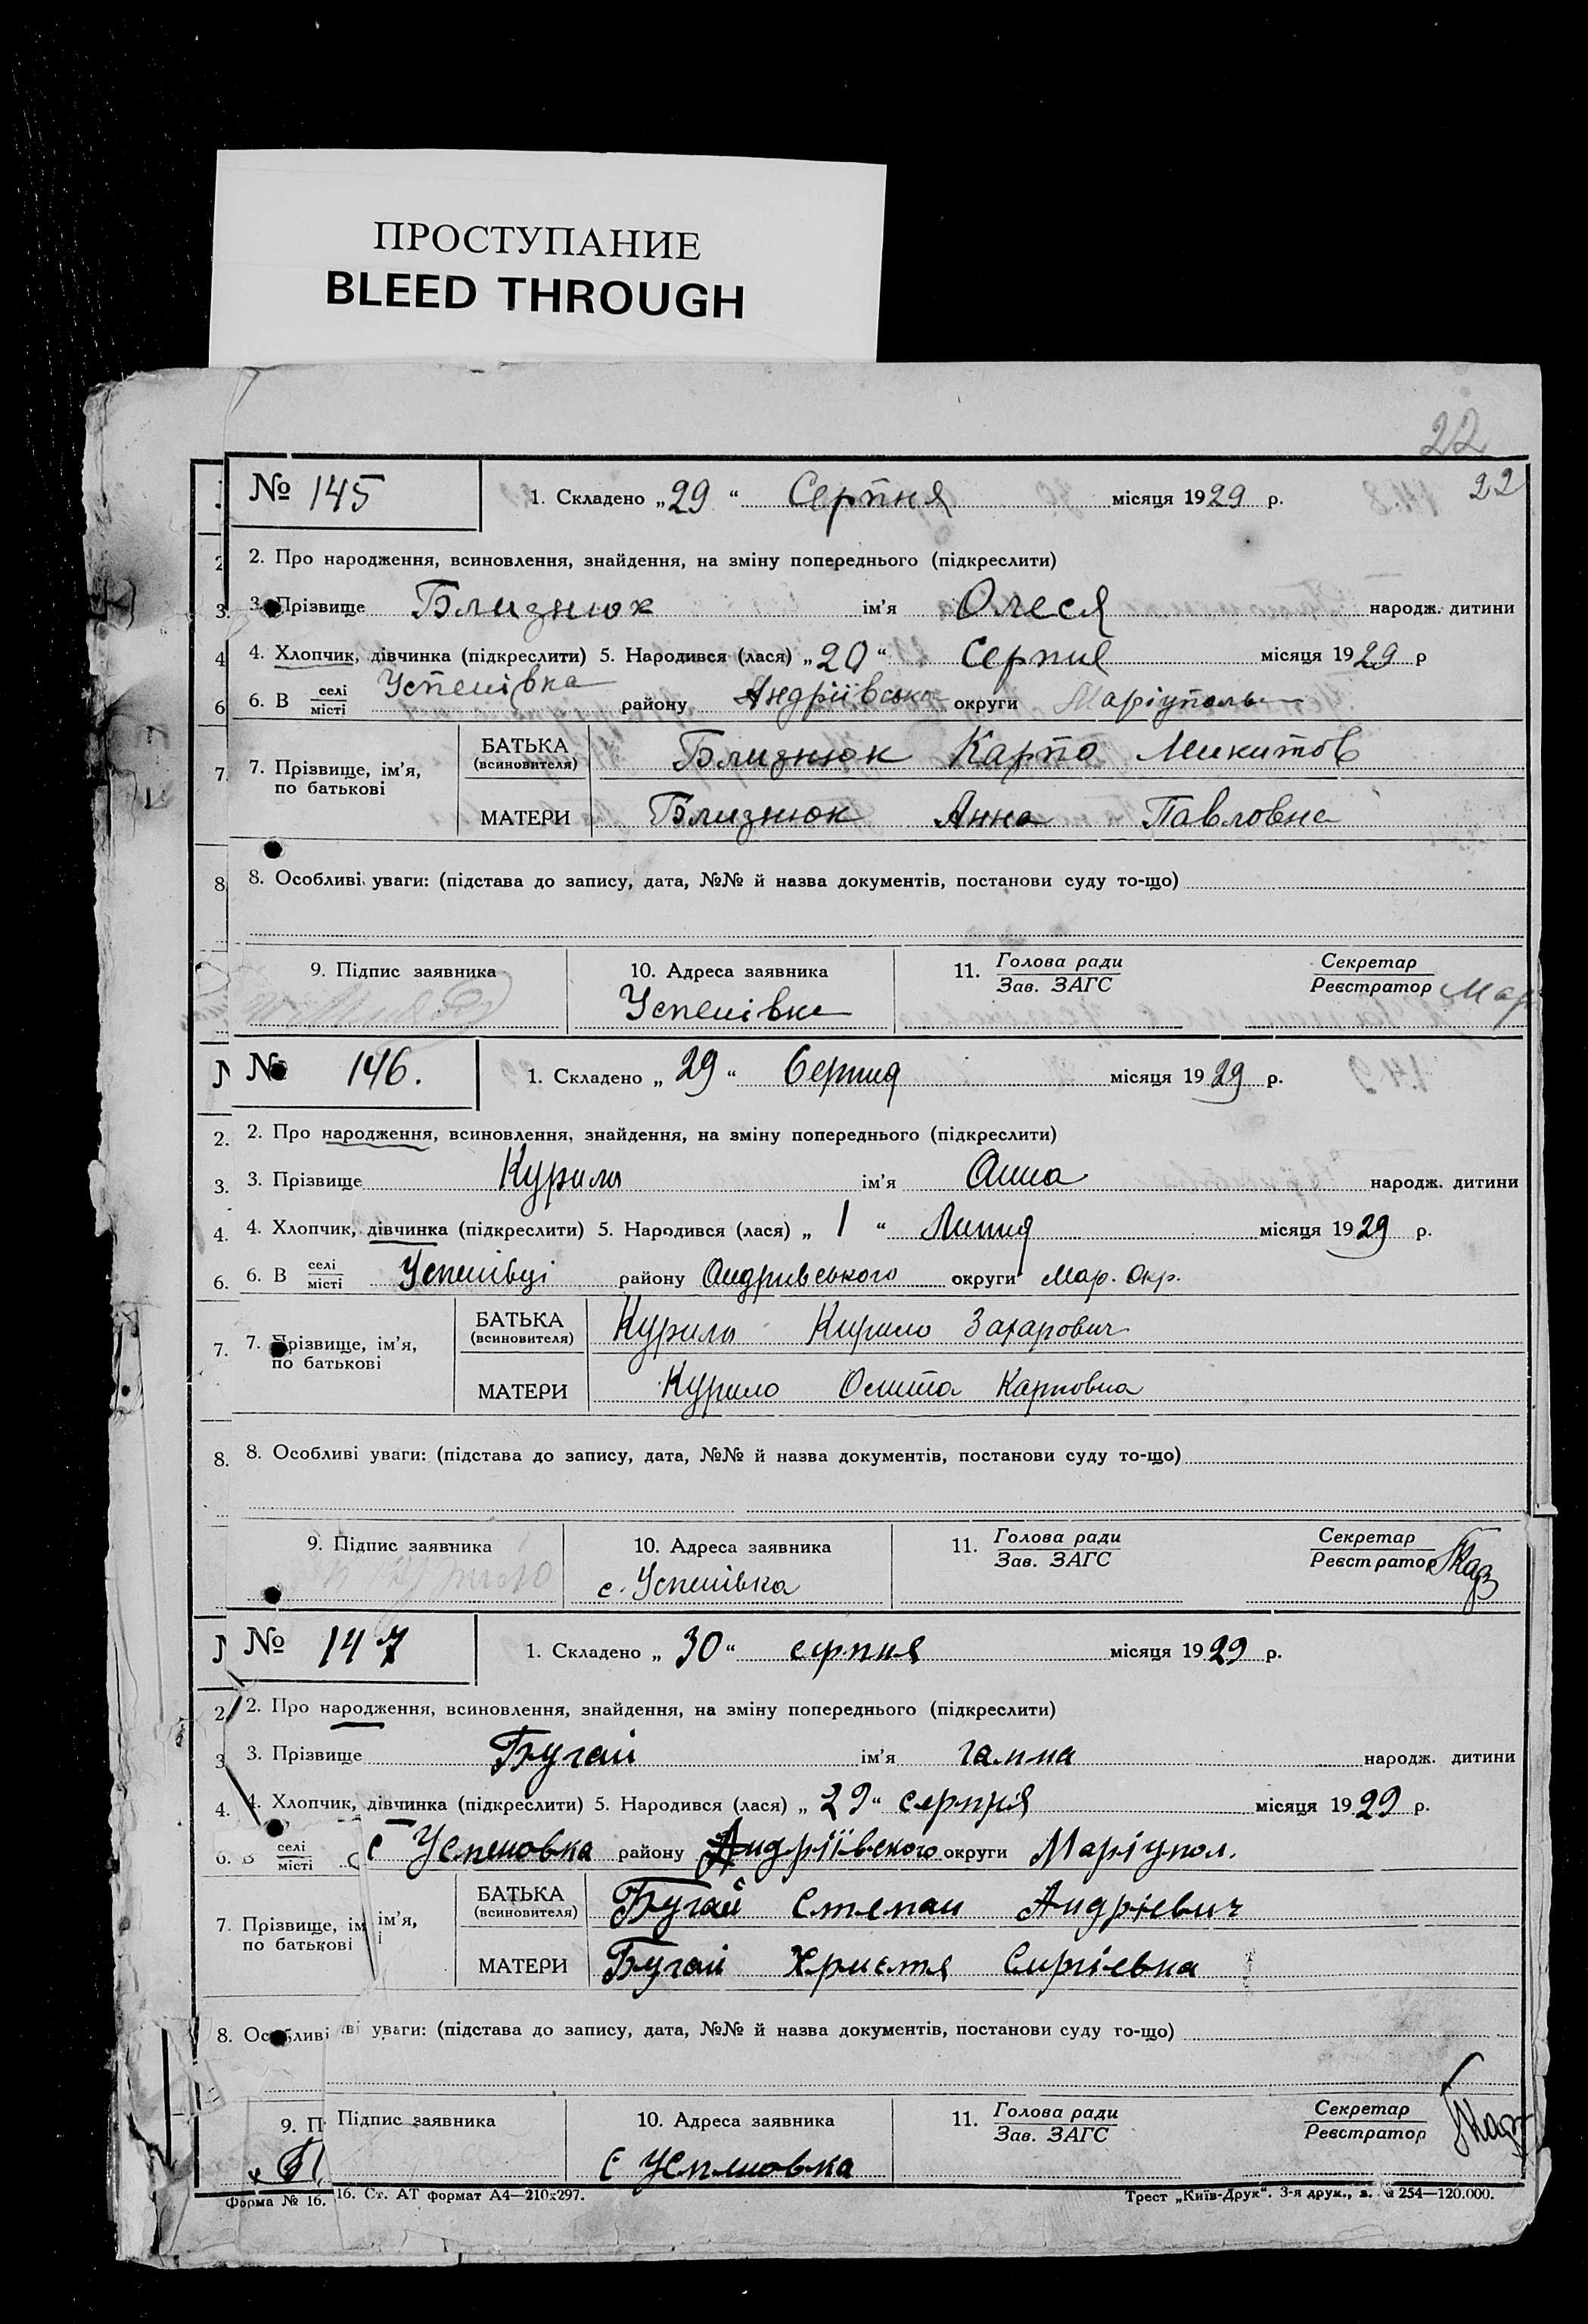 ПРОСТУПАНИЕ
BLEED THROUGH
22
22
№ 145
1. Складено „29“ Серпня місяця 1929 р.
2. Про народження, всиновлення, знайдення, на зміну попереднього (підкреслити)
3. Прізвище Близнюк ім’я Олеся народж. дитини
4. Хлопчик, дівчинка (підкреслити) 5. Народився (лася) „20“ Серпня місяця 1929 р
6. В селі/місті Успенівка району Андріївсько округи Маріуполь
7. Прізвище, ім’я, по батькові
БАТЬКА (всиновителя) Близнюк Карпо Микитов
МАТЕРИ Близнюк Анна Павловна
8. Особливі уваги: (підстава до запису, дата, №№ й назва документів, постанови суду то-що)
9. Підпис заявника 10. Адреса заявника 11. Голова ради/Зав. ЗАГС Секретар/Реєстратор
Успенівка
№ 146.
1. Складено „29“ Серпня місяця 1929 р.
2. Про народження, всиновлення, знайдення, на зміну попереднього (підкреслити)
3. Прізвище Курило ім’я Анна народж. дитини
4. Хлопчик, дівчинка (підкреслити) 5. Народився (лася) „1“ Липня місяця 1929 р.
6. В селі/місті Успенівці району Андривського округи Мар. Окр.
7. Прізвище, ім’я, по батькові
БАТЬКА (всиновителя) Курило Кирило Захарович
МАТЕРИ Курило Карповна
8. Особливі уваги: (підстава до запису, дата, №№ й назва документів, постанови суду то-що)
9. Підпис заявника 10. Адреса заявника 11. Голова ради/Зав. ЗАГС Секретар/Реєстратор
с. Успенівка
№ 147
1. Складено „30“ серпня місяця 1929 р.
2. Про народження, всиновлення, знайдення, на зміну попереднього (підкреслити)
3. Прізвище Бугай ім’я ганна народж. дитини
4. Хлопчик, дівчинка (підкреслити) 5. Народився (лася) „29“ серпня місяця 1929 р.
6. В селі/місті с Успеновка району Андріївского округи Маріупол.
7. Прізвище, ім’я, по батькові
БАТЬКА (всиновителя) Бугай Степан Андрієвич
МАТЕРИ Бугай Христя Сиргіевна
8. Особливі уваги: (підстава до запису, дата, №№ й назва документів, постанови суду то-що)
9. Підпис заявника 10. Адреса заявника 11. Голова ради/Зав. ЗАГС Секретар/Реєстратор
с Успеновка
Форма № 16. Ст. АТ формат А4—210x297. Трест „Київ-Друк“. 3-я друк., з. № 254—120.000.